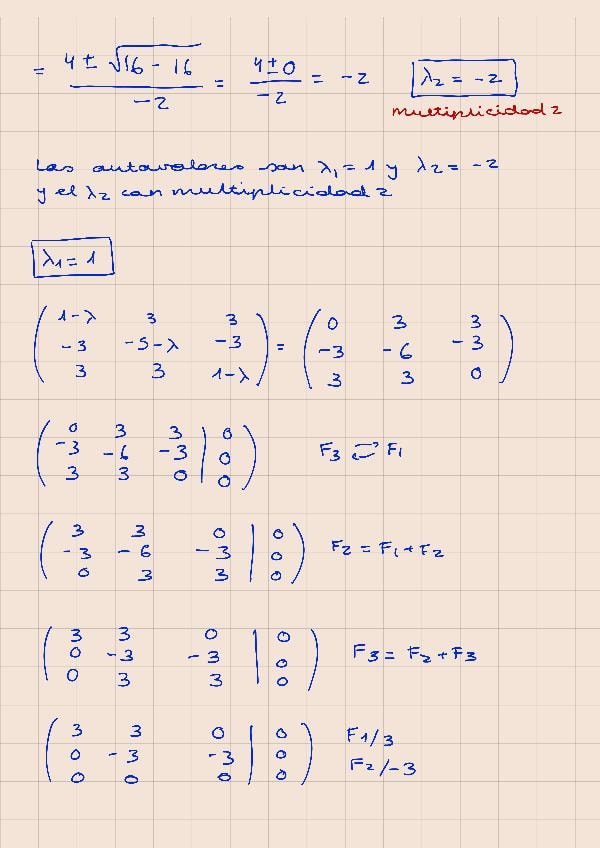 = (4 ± √(16 - 16)) / -2 = (4 ± 0) / -2 = -2   λ₂ = -2
multiplicidad 2
Los autovalores son λ₁ = 1 y λ₂ = -2
y el λ₂ con multiplicidad 2
λ₁ = 1
( 1-λ 3 3 ) = ( 0 3 3 )
( -3 -5-λ -3 ) ( -3 -6 -3 )
( 3 3 1-λ ) ( 3 3 0 )
( 0 3 3 | 0 )
( -3 -6 -3 | 0 ) F₃ ⇄ F₁
( 3 3 0 | 0 )
( 3 3 0 | 0 )
( -3 -6 -3 | 0 ) F₂ = F₁ + F₂
( 0 3 3 | 0 )
( 3 3 0 | 0 )
( 0 -3 -3 | 0 ) F₃ = F₂ + F₃
( 0 3 3 | 0 )
( 3 3 0 | 0 ) F1/3
( 0 -3 -3 | 0 ) F₂/-3
( 0 0 0 | 0 )